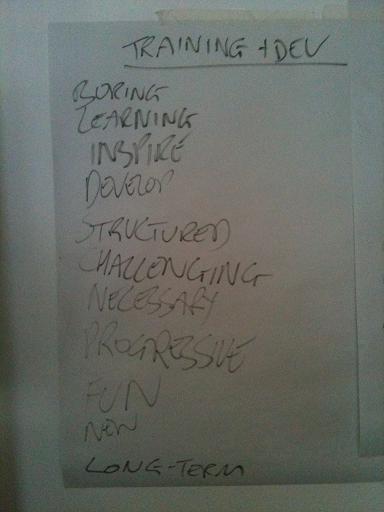 TRAINING + DEV
BORING
LEARNING
INSPIRE
DEVELOP
STRUCTURED
CHALLENGING
NECESSARY
PROGRESSIVE
FUN
NEW
LONG-TERM